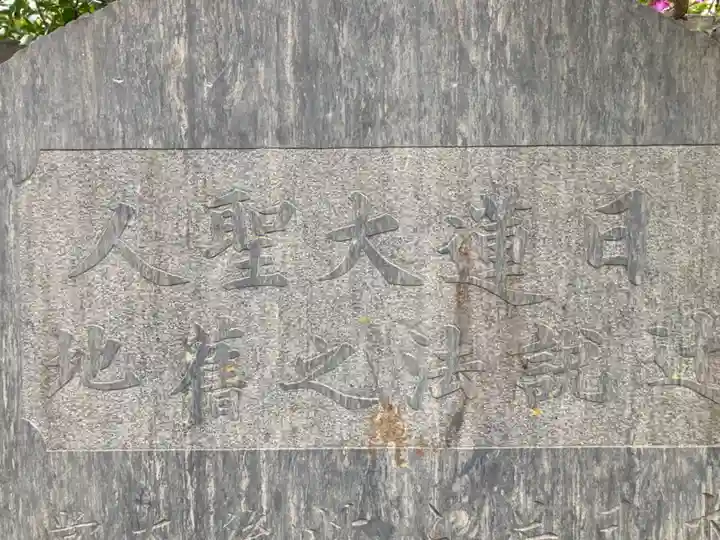 日蓮大聖人
辻説法之舊地